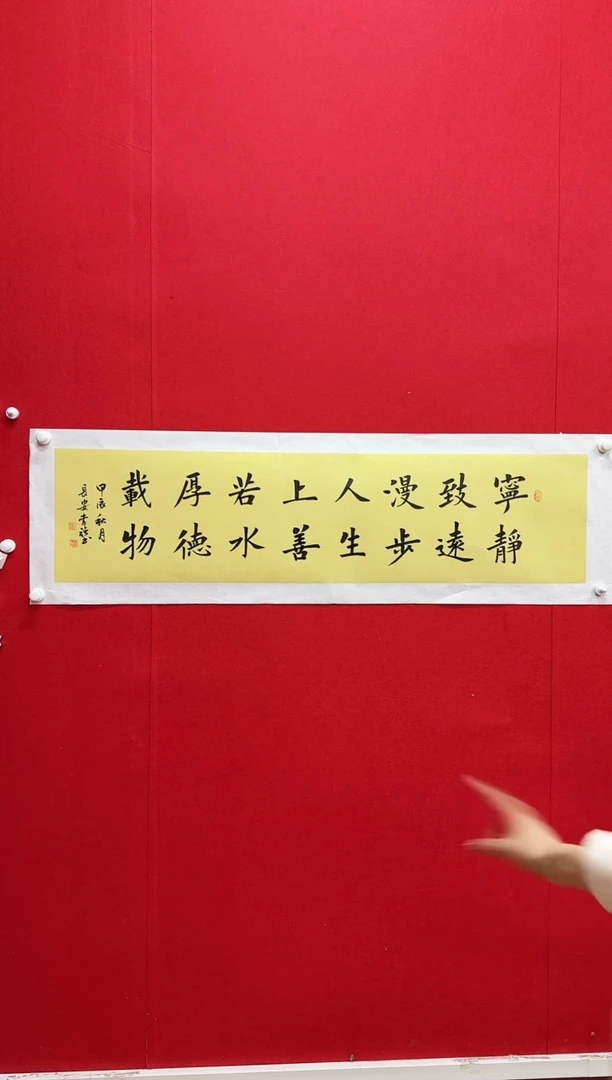 寧靜
致遠
漫步
人生
上善
若水
厚德
載物
甲辰秋月
長安李